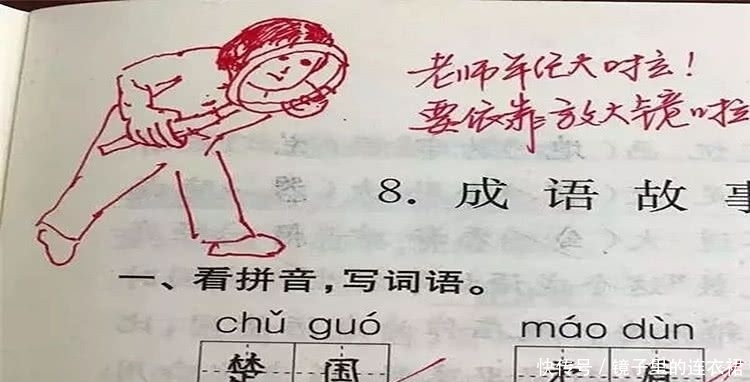 老师年纪大啦！
要依靠放大镜啦
8. 成语故事
一、看拼音，写词语。
chǔ guó máo dùn
楚国
快传号／镜子里的连衣裙